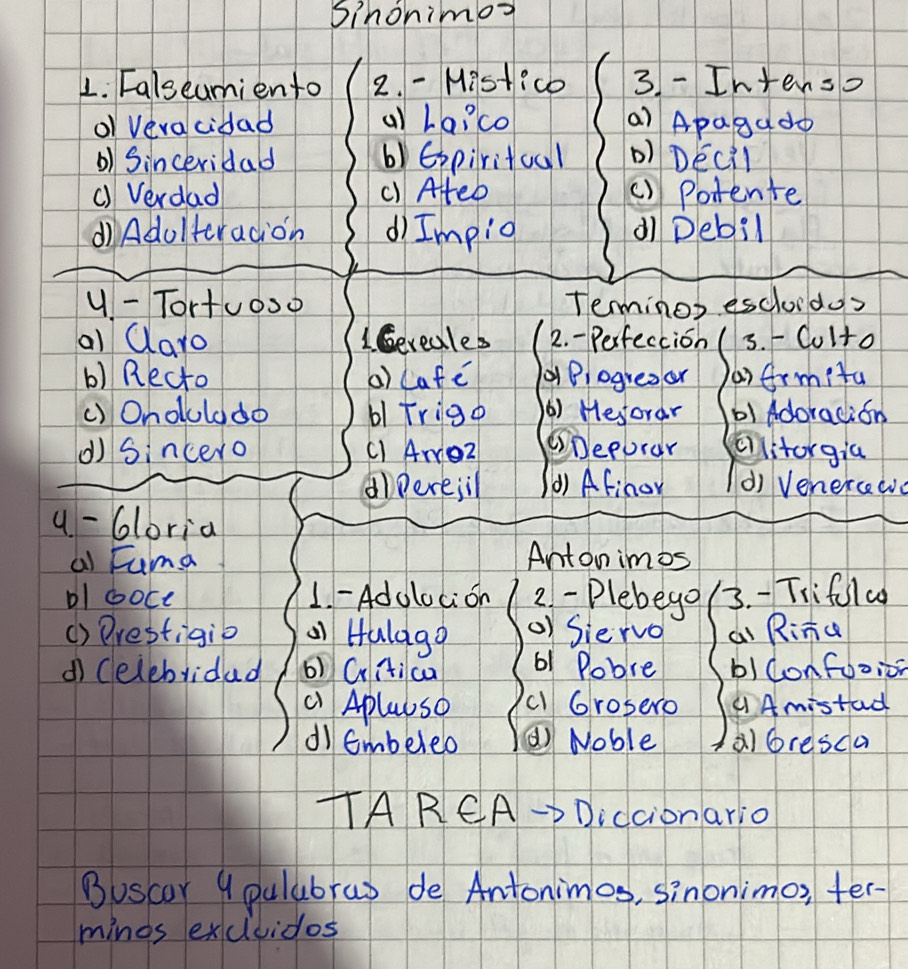 Sinónimos
1. Falseamiento
a) Veracidad
b) Sinceridad
c) Verdad
d) Adulteración
2.- Mistico
a) Laico
b) Espiritual
c) Ateo
d) Impio
3.- Intenso
a) Apagado
b) Décil
c) Potente
d) Debil
4.- Tortuoso
a) Claro
b) Recto
c) Ondulado
d) Sincero
Terminos escluidos
1. Cereales
a) Café
b) Trigo
c) Arroz
d) Perejil
2.- Perfección
a) Progresar
b) Mejorar
c) Depurar
d) Afinar
3.- Culto
a) Ermita
b) Adoración
c) liturgia
d)
4.- Gloria
a) Fama
b) Goce
c) Prestigio
d) Celebridad
Antonimos
1.- Adulación
a) Halago
b) Crítica
c) Aplauso
d) Embeleo
2.- Plebeyo
a) Siervo
b) Pobre
c) Grosero
d) Noble
3.- Trifulca
a) Riña
b) Confusión
c) Amistad
d) Gresca
TAREA → Diccionario
Buscar 4 palabras de Antonimos, sinonimos, ter-
minos excluidos